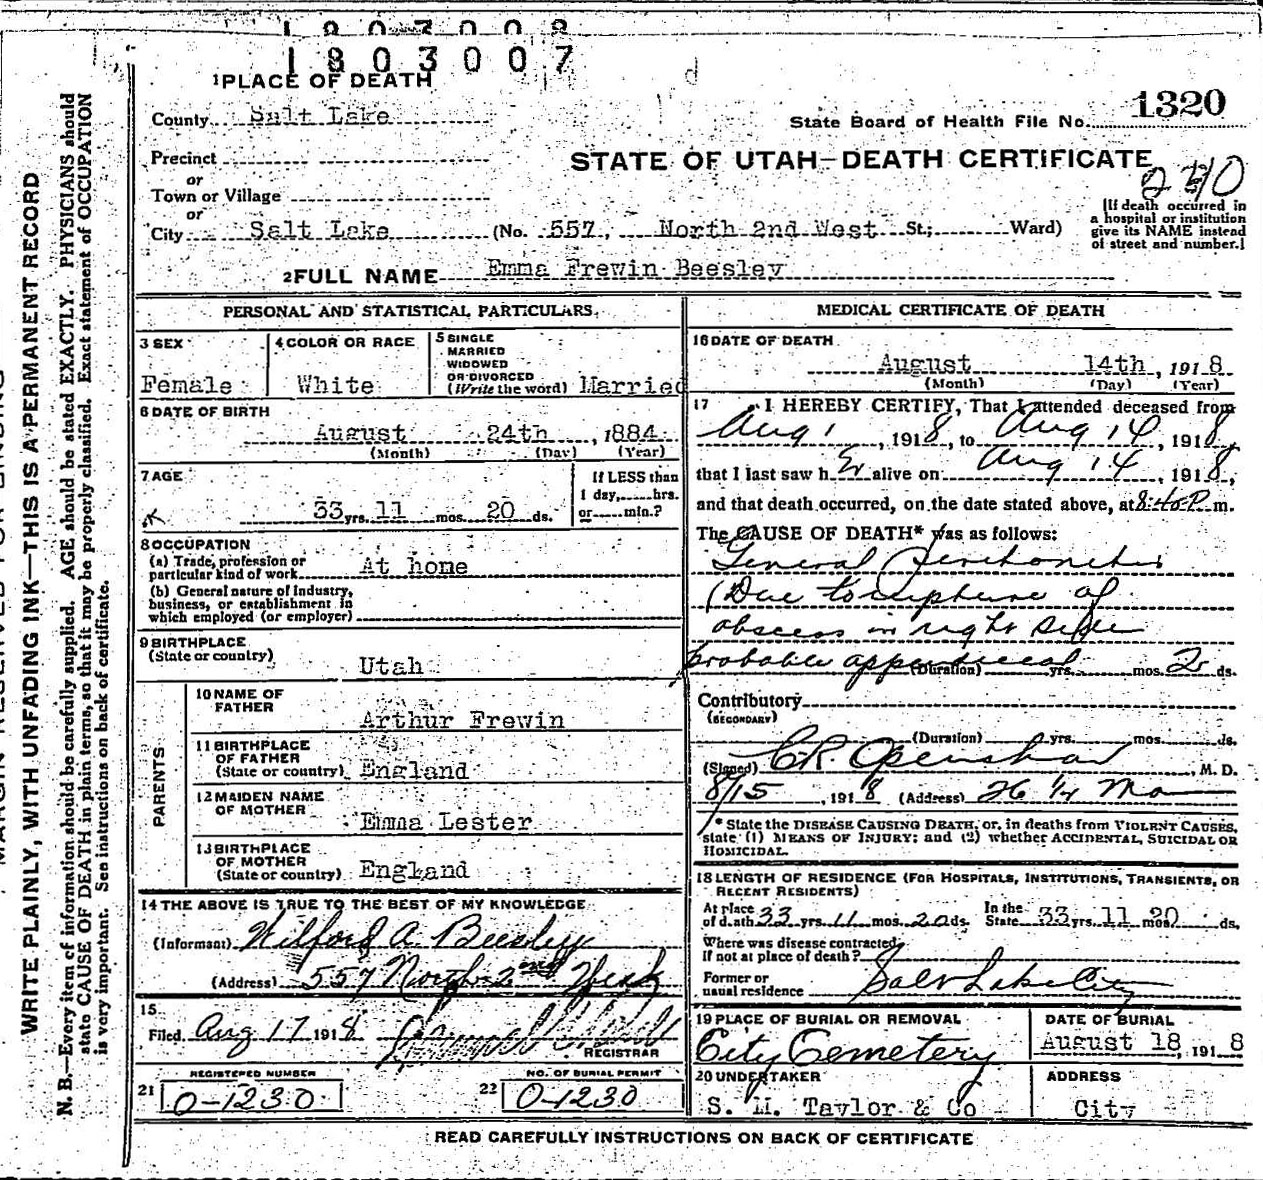 1803008
1803007
1 PLACE OF DEATH
County Salt Lake
State Board of Health File No. 1320
Precinct
or
STATE OF UTAH—DEATH CERTIFICATE
Town or Village
or
City Salt Lake (No. 557, North 2nd West St.; Ward)
[If death occurred in
a hospital or institution
give its NAME instead
of street and number.]
2 FULL NAME Emma Frewin Beesley
PERSONAL AND STATISTICAL PARTICULARS.
3 SEX
Female
4 COLOR OR RACE
White
5 SINGLE
MARRIED
WIDOWED
OR DIVORCED
(Write the word) Married
6 DATE OF BIRTH
August 24th, 1884
(Month) (Day) (Year)
7 AGE
33 yrs. 11 mos. 20 ds.
If LESS than
1 day, hrs.
or min.?
8 OCCUPATION
(a) Trade, profession or
particular kind of work At home
(b) General nature of industry,
business, or establishment in
which employed (or employer)
9 BIRTHPLACE
(State or country) Utah
PARENTS
10 NAME OF
FATHER Arthur Frewin
11 BIRTHPLACE
OF FATHER
(State or country) England
12 MAIDEN NAME
OF MOTHER Emma Lester
13 BIRTHPLACE
OF MOTHER
(State or country) England
14 THE ABOVE IS TRUE TO THE BEST OF MY KNOWLEDGE
(Informant) Wilford A. Beesley
(Address) 557 North 2nd West
15
Filed Aug 17 1918
REGISTRAR
REGISTERED NUMBER
21 0-1230
NO. OF BURIAL PERMIT
22 0-1230
MEDICAL CERTIFICATE OF DEATH
16 DATE OF DEATH
August 14th, 1918
(Month) (Day) (Year)
17 I HEREBY CERTIFY, That I attended deceased from
Aug 1, 1918, to Aug 14, 1918,
that I last saw her alive on Aug 14, 1918,
and that death occurred, on the date stated above, at 8:40 P. m.
The CAUSE OF DEATH* was as follows:
General Peritonitis
(Due to rupture of
abscess in right side
probable appendiceal (Duration) yrs. mos. 2 ds.
Contributory
(SECONDARY)
(Duration) yrs. mos. ds.
(Signed) C.R. Openshaw, M. D.
8/15, 1918 (Address) 26 1/4 Main
* State the DISEASE CAUSING DEATH, or, in deaths from VIOLENT CAUSES,
state (1) MEANS OF INJURY; and (2) whether ACCIDENTAL, SUICIDAL OR
HOMICIDAL.
18 LENGTH OF RESIDENCE (FOR HOSPITALS, INSTITUTIONS, TRANSIENTS, OR
RECENT RESIDENTS)
At place
of death 33 yrs. 11 mos. 20 ds.
In the
State 33 yrs. 11 mos. 20 ds.
Where was disease contracted,
if not at place of death?
Former or
usual residence Salt Lake City
19 PLACE OF BURIAL OR REMOVAL
City Cemetery
DATE OF BURIAL
August 18, 1918
20 UNDERTAKER
S. M. Taylor & Co
ADDRESS
City
READ CAREFULLY INSTRUCTIONS ON BACK OF CERTIFICATE
WRITE PLAINLY, WITH UNFADING INK—THIS IS A PERMANENT RECORD
N. B.—Every item of information should be carefully supplied. AGE should be stated EXACTLY. PHYSICIANS should
state CAUSE OF DEATH in plain terms, so that it may be properly classified. Exact statement of OCCUPATION
is very important. See instructions on back of certificate.